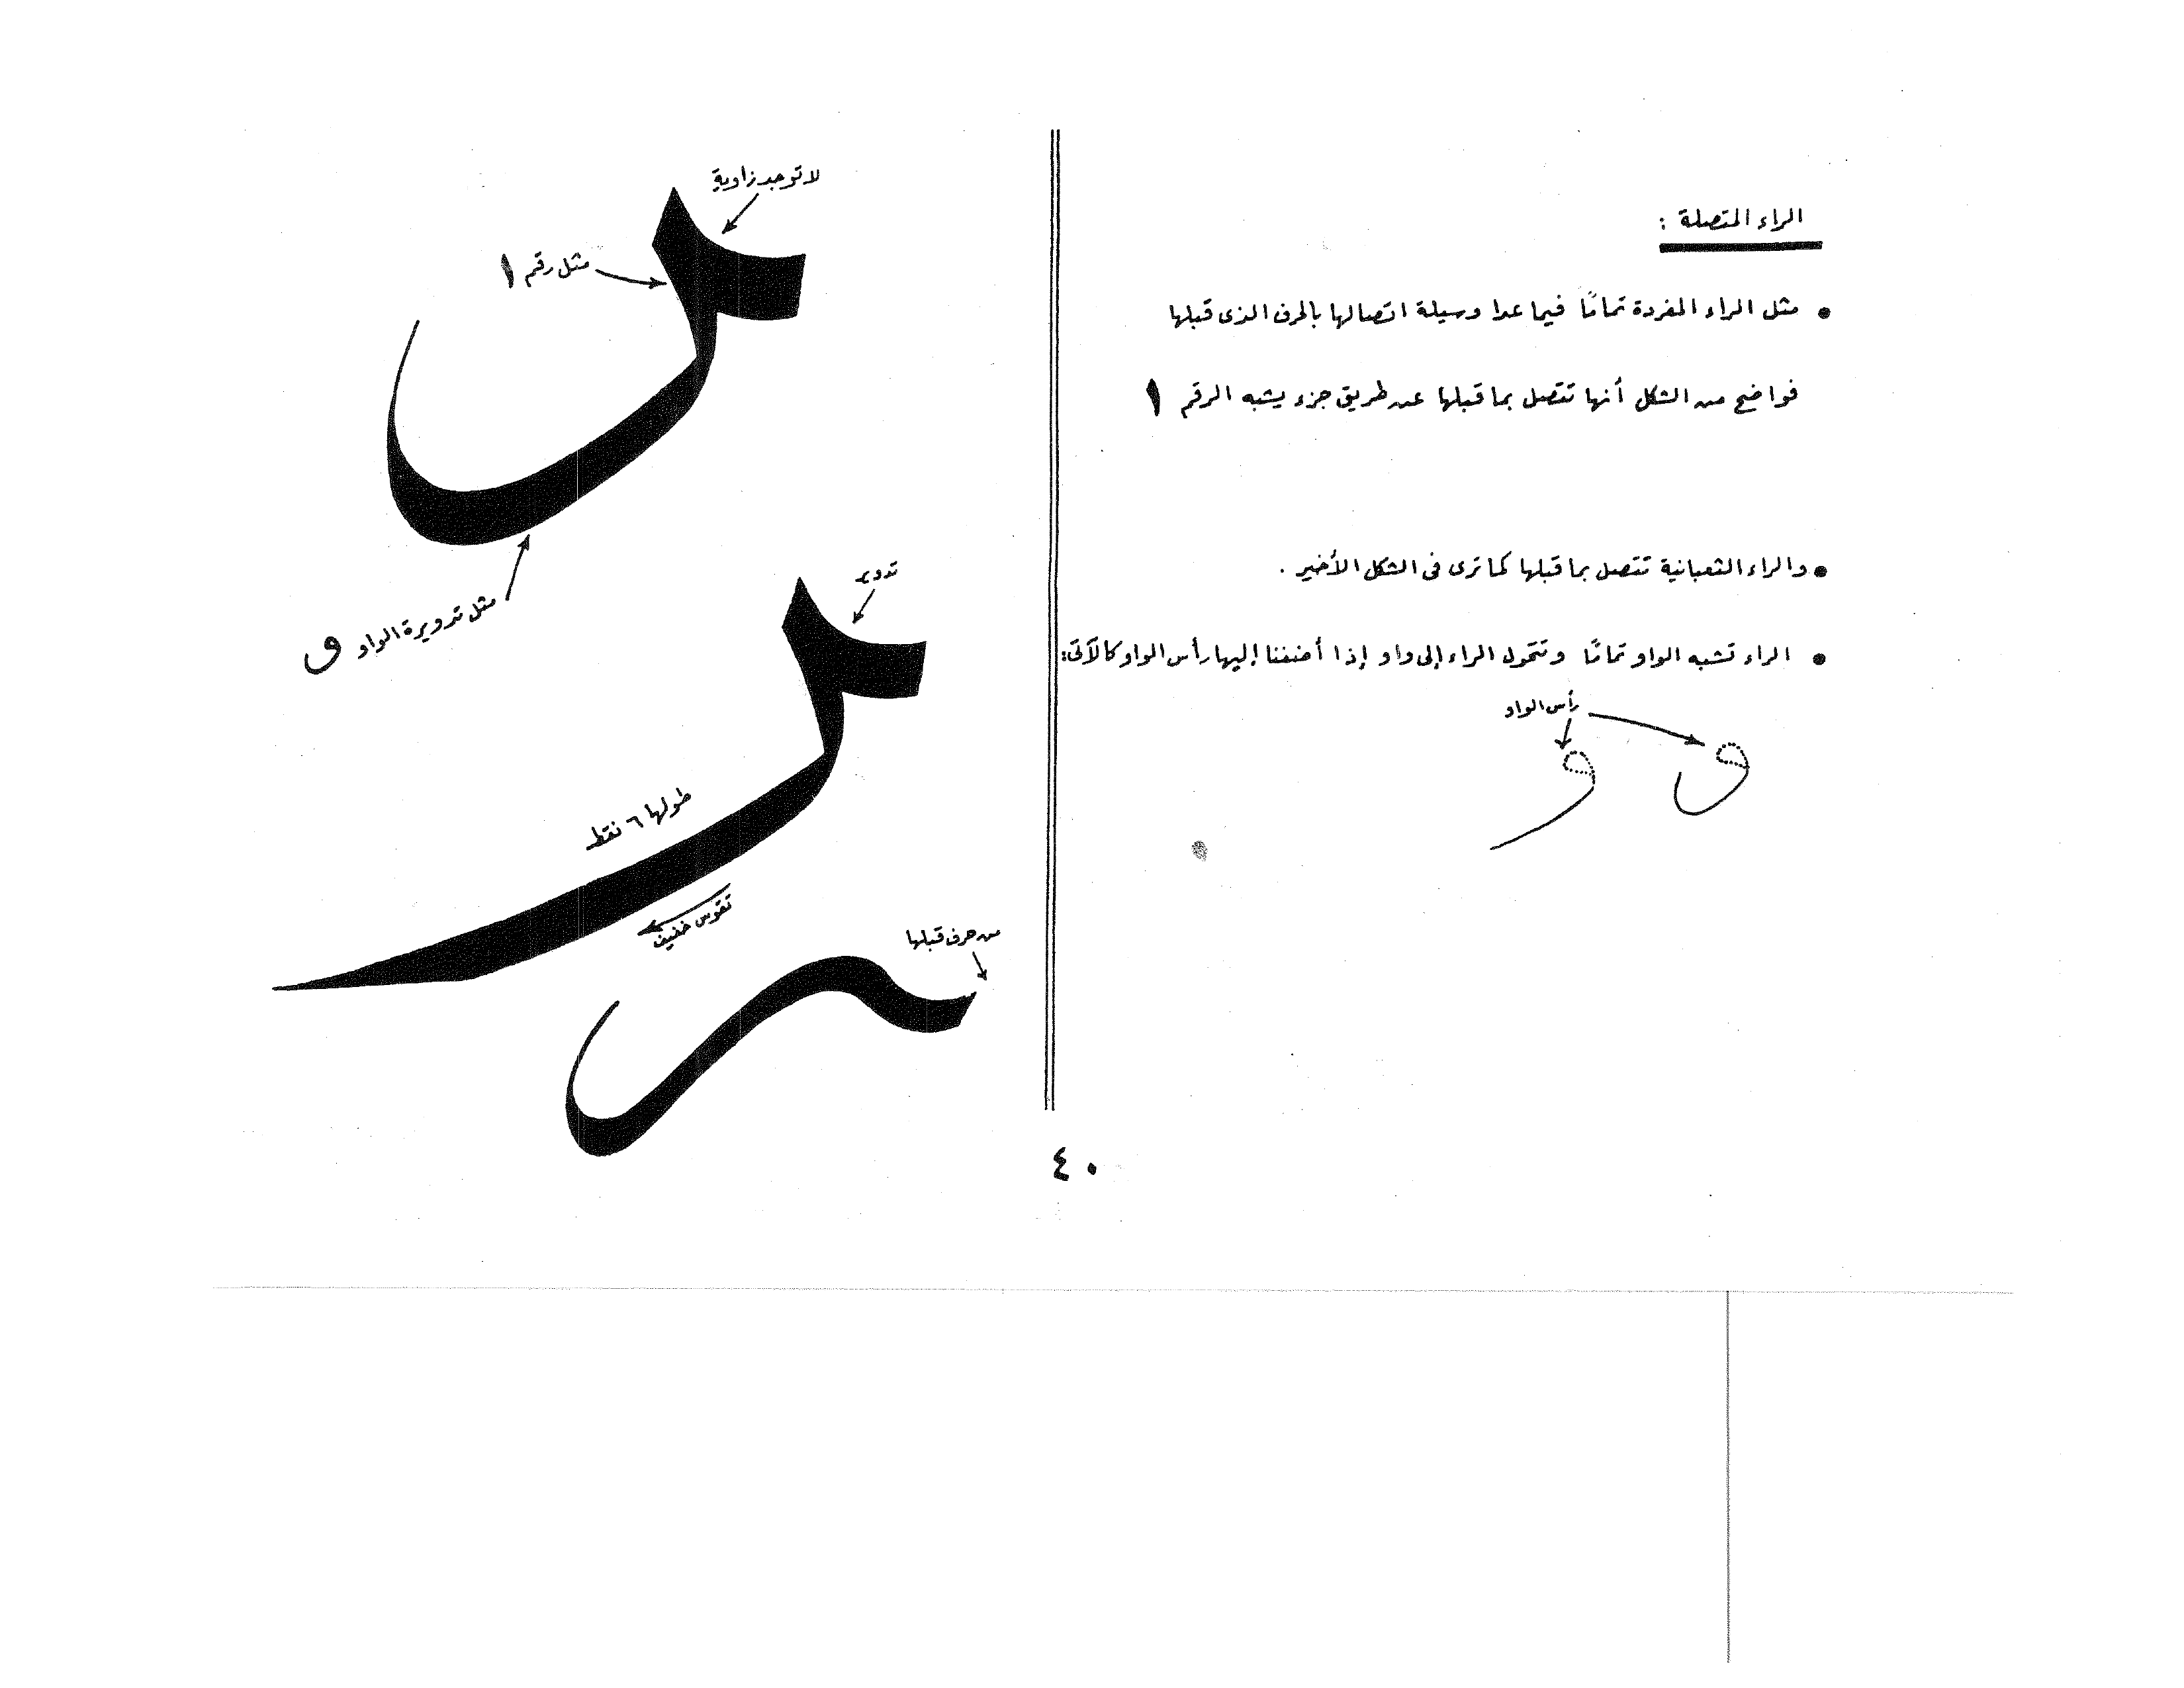 الراء المتصلة :
• مثل الراء المفردة تمامًا فيما عدا وسيلة اتصالها بالحرف الذى قبلها
فواضح من الشكل أنها تتصل بما قبلها عن طريق جزء يشبه الرقم ١
• والراء الثعبانية تتصل بما قبلها كما ترى فى الشكل الأخير .
• الراء تشبه الواو تمامًا وتتحول الراء إلى واو إذا أضفنا إليها رأس الواو كالآتى:
رأس الواو
و و
لا توجد زاوية
مثل رقم ١
مثل تدويرة الواو و
تدوير
طولها ٦ نقط
تقوس خفيف
من حرف قبلها
٤٠